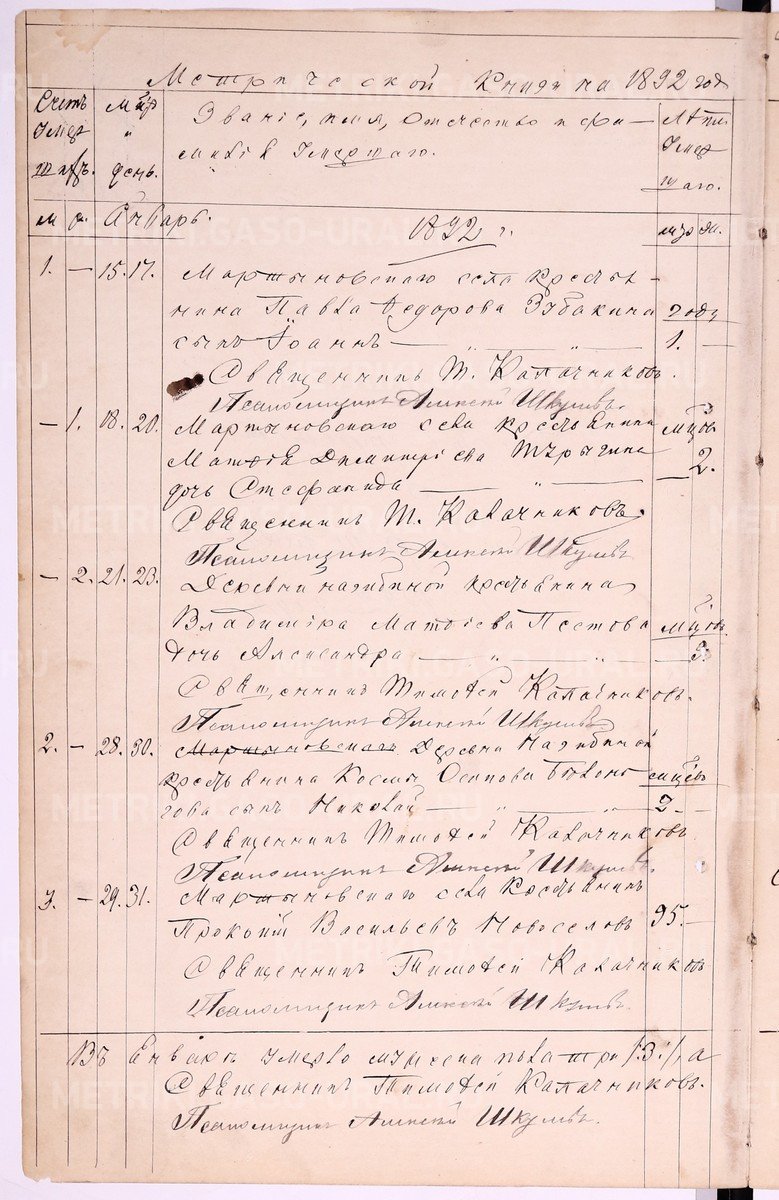 Метрической книги на 1892 год
Счетъ Мѣс. Званіе, имя, отчество и фа-
Умер и милія Умершаго. Лѣта
шихъ. день. Умер
шаго.
м. ж. Январь. 1892 г. муж. ж.
1. — 15. 17. Мартыновскаго села крестья-
нина Павла Ѳедорова Зубакина годъ
сынъ Іоаннъ — „ — „ — 1. —
Священникъ Т. Калачниковъ.
Псаломщикъ Алексѣй Шкулевъ.
— 1. 18. 20. Мартыновскаго села крестьянина мѣсцъ
Матѳѣя Димитріева дочь Стефанида — „ — 2.
Священникъ Т. Калачниковъ.
Псаломщикъ Алексѣй Шкулевъ
— 2. 21. 23. Деревни крестьянина
Владиміра Матѳіева Пестова мѣсцъ.
дочь Александра — „ — „ —
Священникъ Тимоѳей Калачниковъ.
Псаломщикъ Алексѣй Шкулевъ
2. — 28. 30. Мартыновскаго Деревни
крестьянина Космы Осипова мѣсцъ
сынъ Николай — „ — „ — 2 —
Священникъ Тимоѳей Калачниковъ
Псаломщикъ Алексѣй Шкулевъ.
3. — 29. 31. Мартыновскаго села крестьянинъ
Прокопій Васильевъ Новоселовъ 95. —
Священникъ Тимоѳей Калачниковъ
Псаломщикъ Алексѣй Шкулевъ.
Въ Январѣ умерло мужеска пола три /3./, а
Священникъ Тимоѳей Калачниковъ.
Псаломщикъ Алексѣй Шкулевъ.